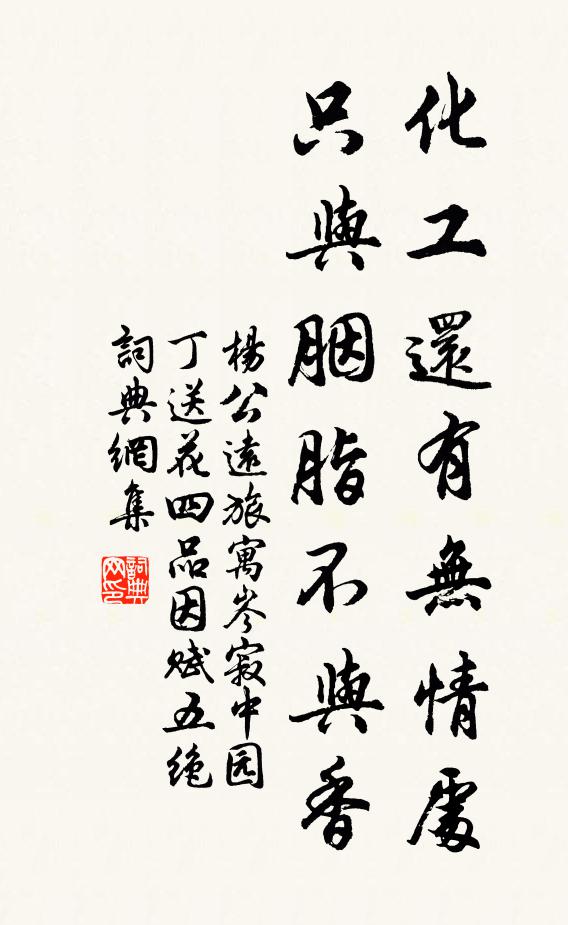 化工還有無情處
只與胭脂不與香
楊公遠旅寓岑寂中园
丁送花四品因赋五绝
詞典網集
詞典网印